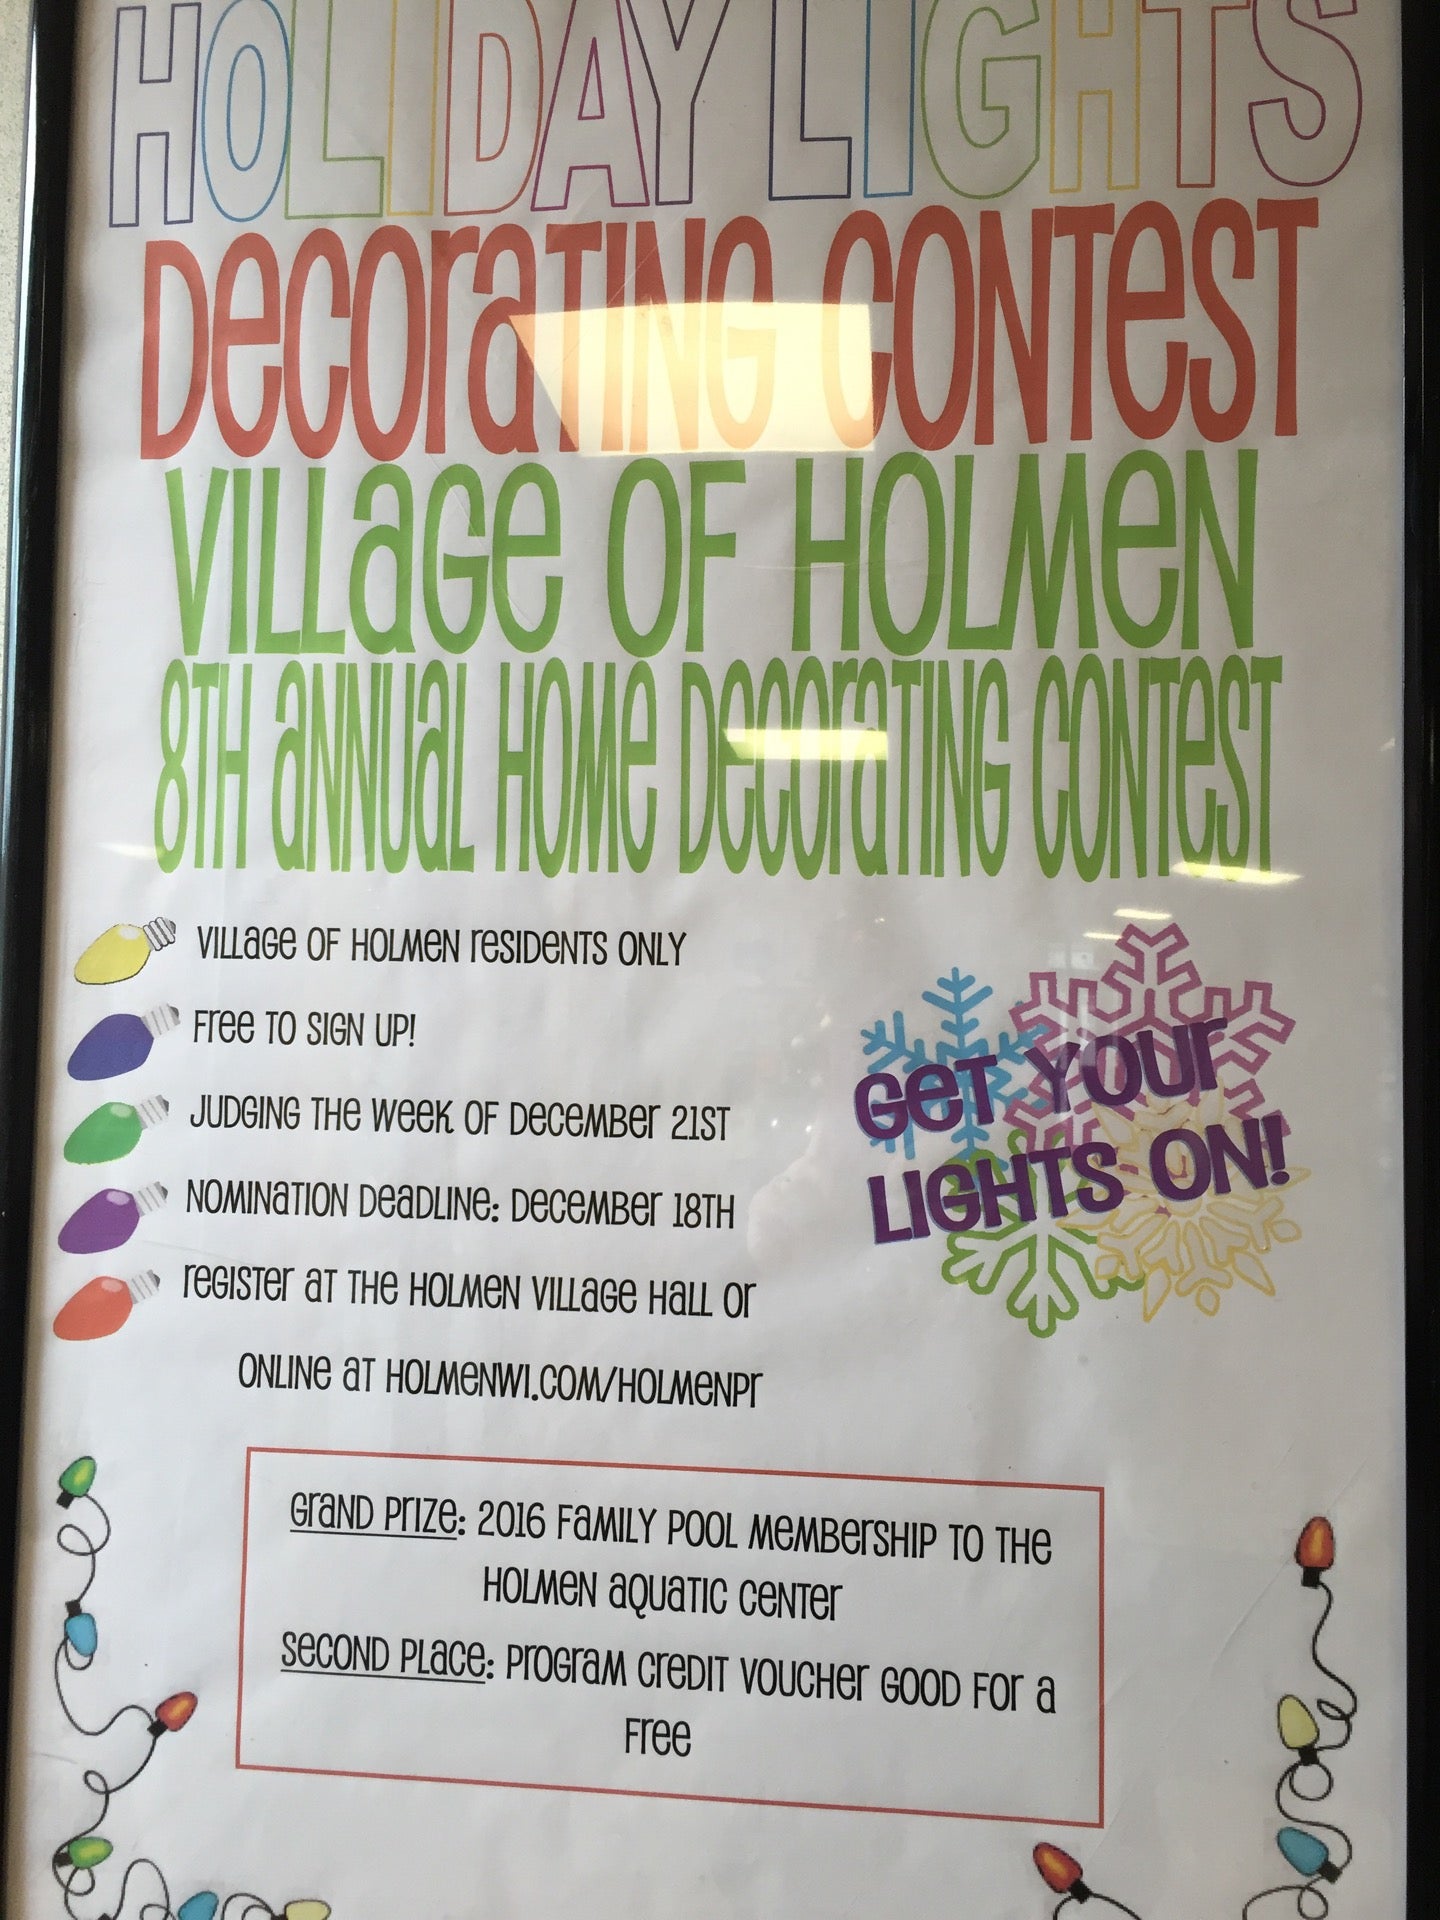 HOLIDAY LIGHTS
DECORATING CONTEST
VILLAGE OF HOLMEN
8TH ANNUAL HOME DECORATING CONTEST
VILLAGE OF HOLMEN RESIDENTS ONLY
FREE TO SIGN UP!
JUDGING THE WEEK OF DECEMBER 21ST
NOMINATION DEADLINE: DECEMBER 18TH
REGISTER AT THE HOLMEN VILLAGE HALL OR
ONLINE AT HOLMENWI.COM/HOLMENPR
GET YOUR
LIGHTS ON!
GRAND PRIZE: 2016 FAMILY POOL MEMBERSHIP TO THE
HOLMEN AQUATIC CENTER
SECOND PLACE: PROGRAM CREDIT VOUCHER GOOD FOR A
FREE